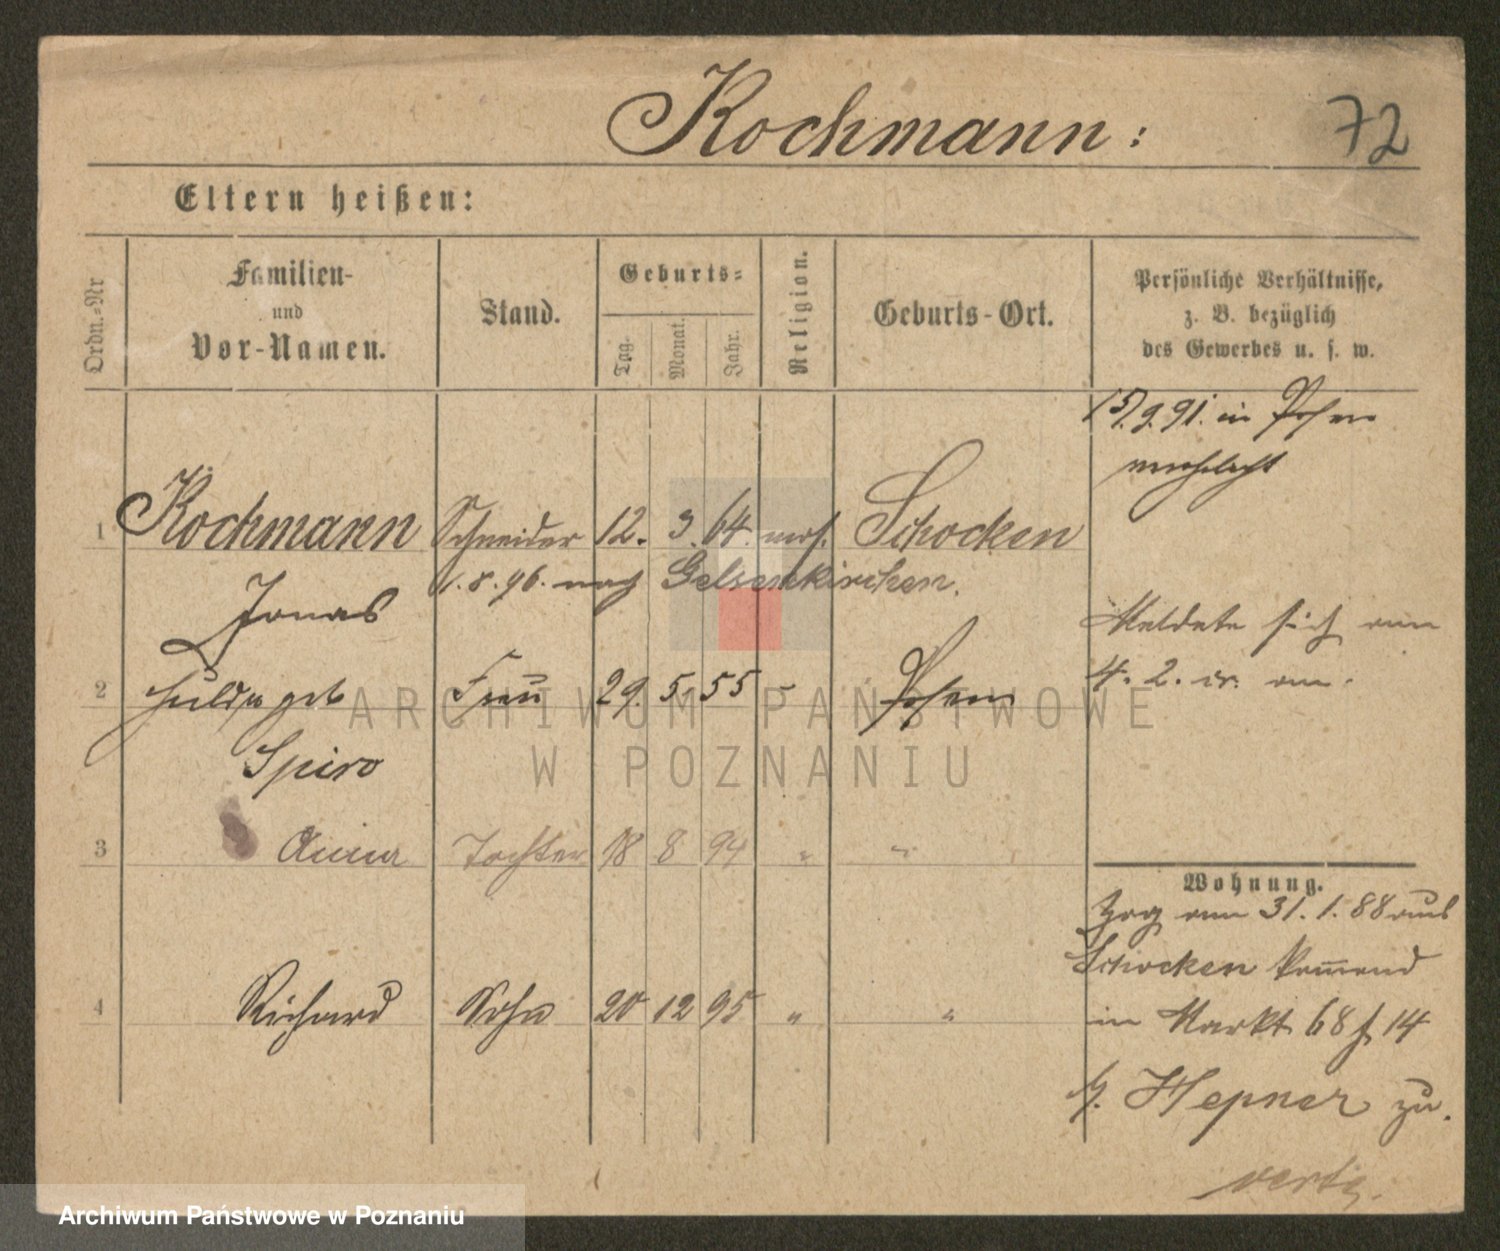 Kochmann:
72
Eltern heißen:
Ordn.-Nr
Familien-
und
Vor-Namen.
Stand.
Geburts-
Tag.
Monat.
Jahr.
Religion.
Geburts-Ort.
Persönliche Verhältnisse,
z. B. bezüglich
des Gewerbes u. s. w.
15.9.91. in Posen
verehelicht
1 Kochmann Schneider 12. 3. 64. mos. Schocken
1.8.96. nach Gelsenkirchen.
Jonas
Meldete sich am
4. 2. cr. an.
2 Hulda geb Frau 29. 5. 55 - Posen
Spiro
3 Anna Tochter 18 8 94 " "
Wohnung.
Zog am 31. 1. 88 aus
Schocken kommend
4 Richard Sohn 20 12 95 " "
in Markt 68 f 14
b. Hepner zu.
vertz.
ARCHIWUM PAŃSTWOWE
W POZNANIU
Archiwum Państwowe w Poznaniu